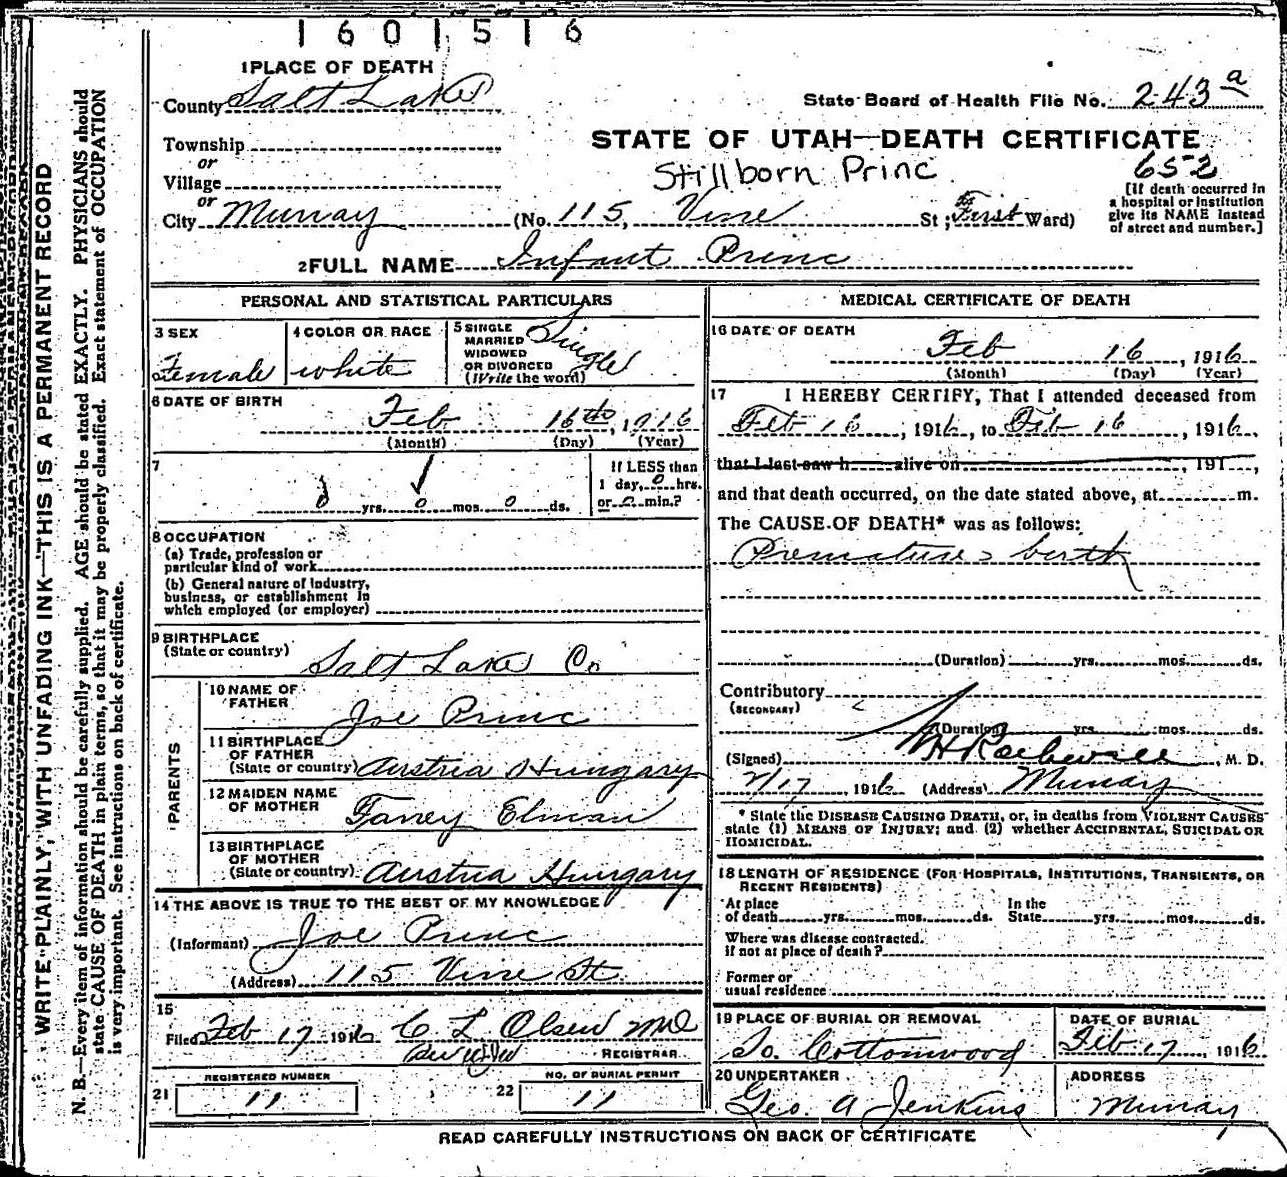 1601516
1 PLACE OF DEATH
County Salt Lake
State Board of Health File No. 243 a
STATE OF UTAH—DEATH CERTIFICATE
Township
or
Stillborn Princ
652
Village
or
[If death occurred in
a hospital or institution
give its NAME instead
of street and number.]
City Murray (No. 115, Vine St; First Ward)
2 FULL NAME Infant Princ
PERSONAL AND STATISTICAL PARTICULARS
3 SEX
Female
4 COLOR OR RACE
white
5 SINGLE
MARRIED
WIDOWED
OR DIVORCED
(Write the word)
Single
6 DATE OF BIRTH
Feb 16th, 1916
(Month) (Day) (Year)
7
0 yrs. 0 mos. 0 ds.
If LESS than
1 day, 0 hrs.
or 0 min.?
8 OCCUPATION
(a) Trade, profession or
particular kind of work
(b) General nature of industry,
business, or establishment in
which employed (or employer)
9 BIRTHPLACE
(State or country)
Salt Lake Co
PARENTS
10 NAME OF
FATHER
Joe Princ
11 BIRTHPLACE
OF FATHER
(State or country) Austria Hungary
12 MAIDEN NAME
OF MOTHER
Faney Elman
13 BIRTHPLACE
OF MOTHER
(State or country) Austria Hungary
14 THE ABOVE IS TRUE TO THE BEST OF MY KNOWLEDGE
(Informant) Joe Princ
(Address) 115 Vine St
15
Filed Feb 17 1916 C L Olsen MD
REGISTRAR
21 REGISTERED NUMBER
11
22 NO. OF BURIAL PERMIT
11
MEDICAL CERTIFICATE OF DEATH
16 DATE OF DEATH
Feb 16, 1916
(Month) (Day) (Year)
17 I HEREBY CERTIFY, That I attended deceased from
Feb 16, 1916, to Feb 16, 1916,
that I last saw h alive on , 191 ,
and that death occurred, on the date stated above, at m.
The CAUSE OF DEATH* was as follows:
Premature birth
(Duration) yrs. mos. ds.
Contributory
(SECONDARY)
(Duration) yrs. mos. ds.
(Signed) , M. D.
2/17, 1916 (Address) Murray
* State the DISEASE CAUSING DEATH, or, in deaths from VIOLENT CAUSES
state (1) MEANS OF INJURY; and (2) whether ACCIDENTAL, SUICIDAL OR
HOMICIDAL.
18 LENGTH OF RESIDENCE (FOR HOSPITALS, INSTITUTIONS, TRANSIENTS, OR
RECENT RESIDENTS)
At place
of death yrs. mos. ds.
In the
State yrs. mos. ds.
Where was disease contracted.
if not at place of death?
Former or
usual residence
19 PLACE OF BURIAL OR REMOVAL
So. Cottonwood
DATE OF BURIAL
Feb 17, 1916
20 UNDERTAKER
Geo. A Jenkins
ADDRESS
Murray
READ CAREFULLY INSTRUCTIONS ON BACK OF CERTIFICATE
WRITE PLAINLY, WITH UNFADING INK—THIS IS A PERMANENT RECORD
N. B.—Every item of information should be carefully supplied. AGE should be stated EXACTLY. PHYSICIANS should
state CAUSE OF DEATH in plain terms, so that it may be properly classified. Exact statement of OCCUPATION
is very important. See instructions on back of certificate.